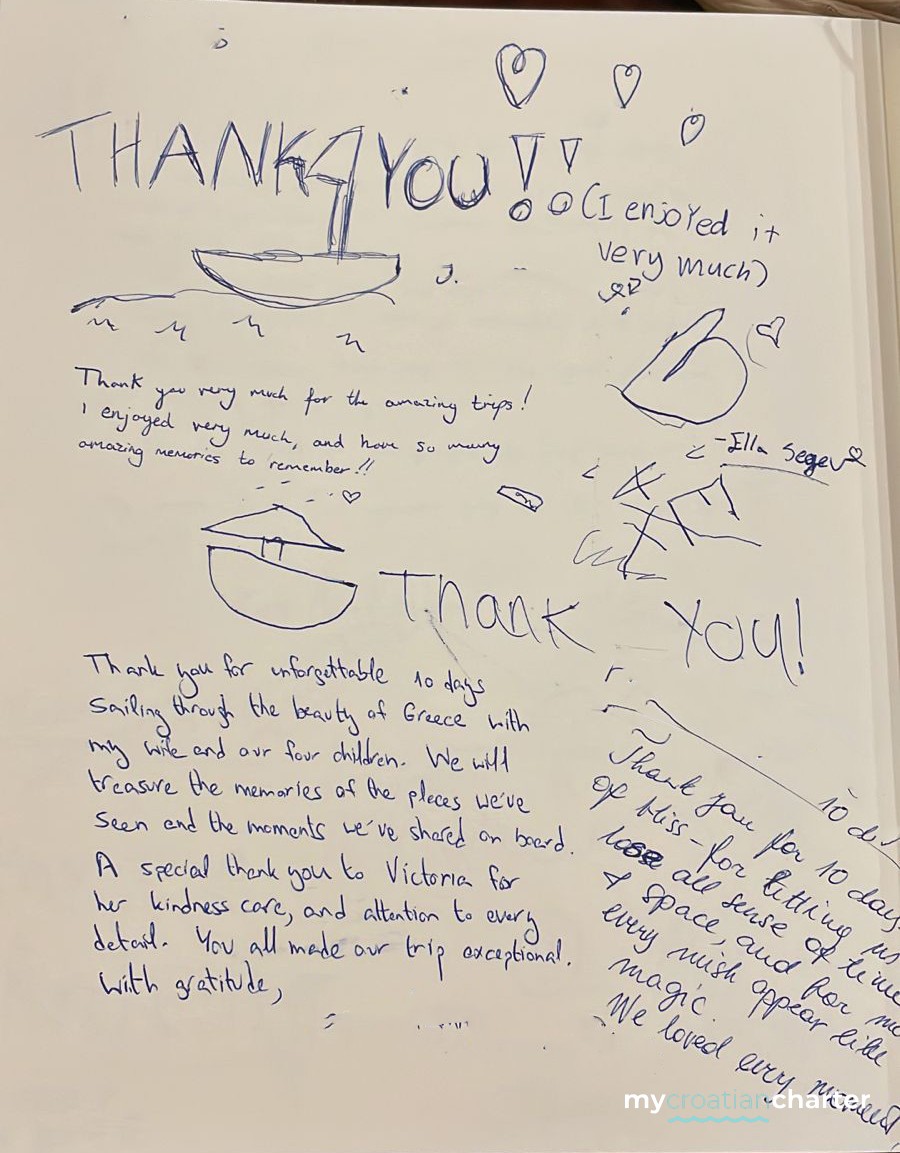 THANK YOU!!
(I enjoyed it
very much)
Thank you very much for the amazing trips!
I enjoyed very much, and have so many
amazing memories to remember!!
-Ella Segev
Thank You!
Thank you for unforgettable 10 days
Sailing through the beauty of Greece with
my wife and our four children. We will
treasure the memories of the places we've
seen and the moments we've shared on board.
A special thank you to Victoria for
her kindness care, and attention to every
detail. You all made our trip exceptional.
With gratitude,
Thank you for 10 days
of bliss - for letting us
lose all sense of time
& space, and for
every wish appear like
magic.
We loved every moment,
mycroatiancharter